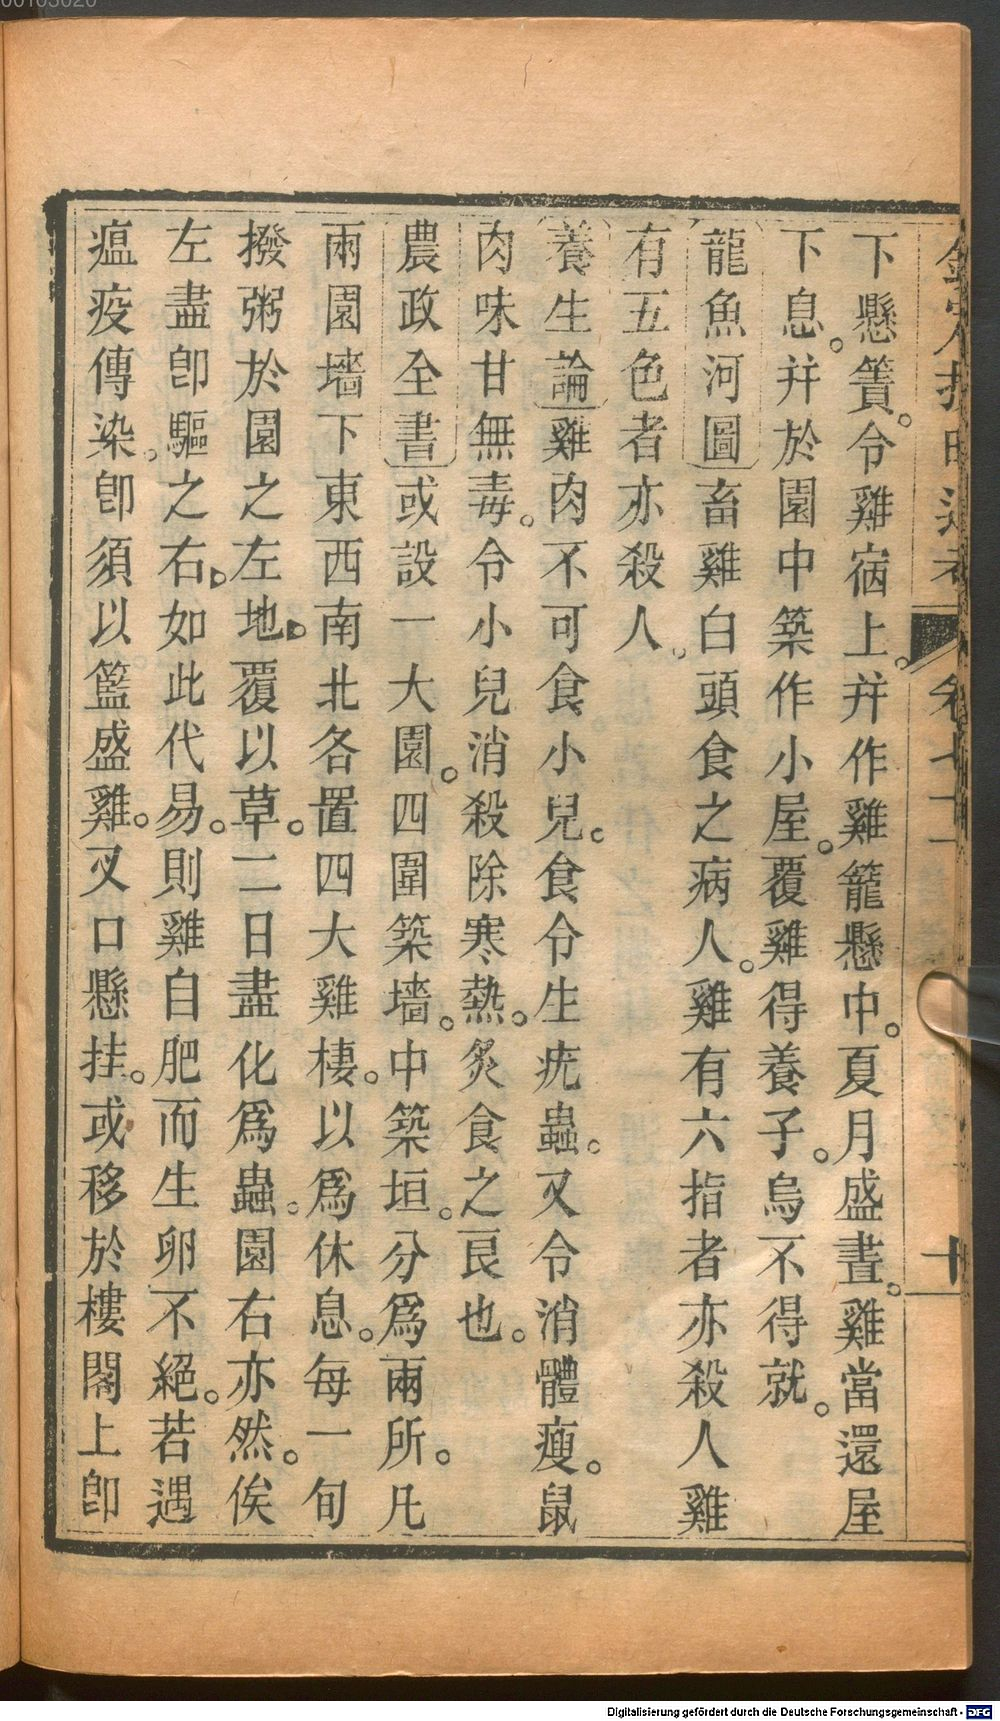 下懸簀。令雞宿上。幷作雞籠懸中。夏月盛晝。雞當還屋
下息。幷於園中築作小屋。覆雞得養子。烏不得就。
龍魚河圖畜雞白頭食之病人。雞有六指者亦殺人雞
有五色者亦殺人。
養生論雞肉不可食小兒。食令生疣蟲。又令消體瘦。鼠
肉味甘無毒。令小兒消殺除寒熱。炙食之良也。
農政全書或設一大園。四圍築墻。中築垣。分爲兩所。凡
兩園墻下東西南北各置四大雞棲。以爲休息。每一旬
撥粥於園之左地。覆以草。二日盡化爲蟲。園右亦然。俟
左盡卽驅之右。如此代易。則雞自肥而生卵不絕。若遇
瘟疫傳染。卽須以籃盛雞。叉口懸挂。或移於樓閣上卽
卷七十二
十
00103020
Digitalisierung gefördert durch die Deutsche Forschungsgemeinschaft - DFG